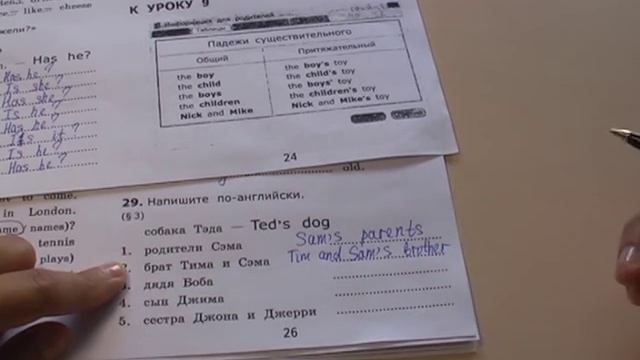 like — cheese
К УРОКУ 9
Информация для родителей
Таблица
Падежи существительного
Общий Притяжательный
the boy the boy's toy
the child the child's toy
the boys the boys' toy
the children the children's toy
Nick and Mike Nick and Mike's toy
— Has he?
Has he?
Is she?
Has she?
Is he?
Has he?
Is it?
Is he?
Has he?
24
old.
to come.
in London.
names)?
tennis
plays)
29. Напишите по-английски.
(§ 3)
собака Тэда — Ted's dog
1. родители Сэма Sam's parents
2. брат Тима и Сэма Tim and Sam's brother
3. дядя Боба
4. сын Джима
5. сестра Джона и Джерри
26